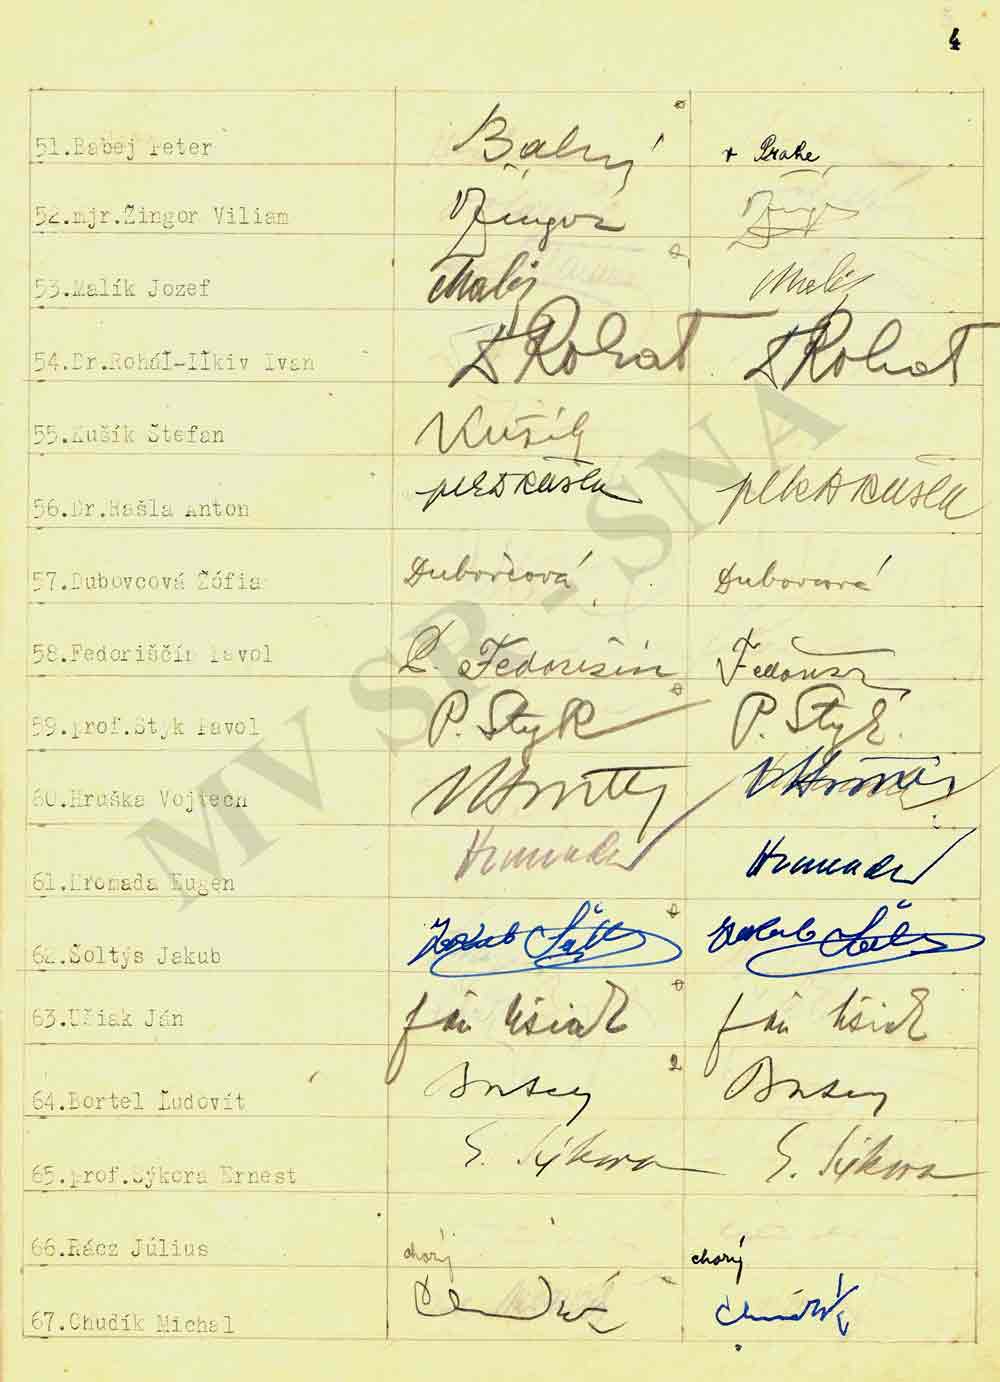 4
51.Babej Peter Babej v Prahe
52.mjr.Žingor Viliam VŽingor Žingor
53.Malík Jozef Malík Malík
54.Dr.Roháľ-Iľkiv Ivan Dr Rohaľ Dr Rohaľ
55.Kušík Štefan Kušík
56.Dr.Rašla Anton Rašla Rašla
57.Dubovcová Žófia Dubovcová Dubovcová
58.Fedoriščín Pavol P. Fedorišin
59.prof.Styk Pavol P. Styk P. Styk
60.Hruška Vojtech
61.Hromada Eugen Hromada Hromada
62.Šoltýs Jakub Jakub Jakub
63.Ušiak Ján Ján Ušiak Ján Ušiak
64.Bortel Ľudovít
65.prof.Sýkora Ernest E. Sýkora E. Sýkora
66.Rácz Július chorý chorý
67.Chudík Michal
MV SR - SNA